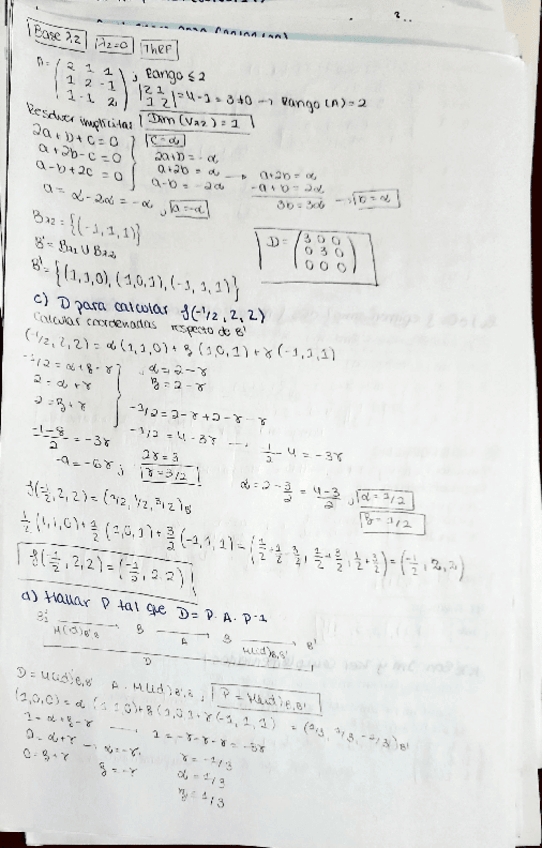 Base λ2 | λ2=0 | Th RF
A= (2 1 1 / 1 2 -1 / 1 -1 2) , Rango ≤ 2
|2 1 / 1 2| = 4-1 = 3 ≠ 0 → Rango (A) = 2
Resolver implícitas Dim (Vλ2) = 1
2a+b+c=0 C=α
a+2b-c=0 2a+b = -α
a-b+2c=0 a+2b = α → a+2b = α
a-b = -2α -a+b = 2α
a = α-2α = -α , a=-α 3b = 3α → b=α
Bλ2 = {(-1,1,1)}
B' = Bλ1 U Bλ2
D = (3 0 0 / 0 3 0 / 0 0 0)
B' = {(1,1,0), (1,0,1), (-1,1,1)}
c) D para calcular f(-1/2, 2, 2)
Calcular coordenadas respecto de B'
(-1/2, 2, 2) = α (1,1,0) + β (1,0,1) + γ (-1,1,1)
-1/2 = α+β-γ , α = 2-γ
2 = α+γ β = 2-γ
2 = β+γ -1/2 = 2-γ+2-γ-γ
-1-8/2 = -3γ -1/2 = 4-3γ → 1/2 -4 = -3γ
-9 = -6γ ; 2γ=3
γ=3/2 α = 2-3/2 = 4-3/2 , α = 1/2
f(-1/2, 2, 2) = (1/2, 1/2, 3/2)B β = 1/2
1/2 (1,1,0) + 1/2 (1,0,1) + 3/2 (-1,1,1) = (1/2+1/2-3/2, 1/2+3/2, 1/2+3/2) = (-1/2, 2, 2)
f(-1/2, 2, 2) = (-1/2, 2, 2)
d) Hallar P tal que D = P · A · P-1
B' → B → B → B'
M(id)B'B A M(id)B,B'
D
D = M(id)B,B' A · M(id)B',B ; P = M(id)B,B'
(1,0,0) = α (1,1,0) + β (1,0,1) + γ (-1,1,1) = (1/3, 1/3, -1/3)B'
1 = α+β-γ 1 = -γ-γ-γ = -3γ
0 = α+γ → α=-γ, γ = -1/3
0 = β+γ β=-γ α = 1/3
β = 1/3